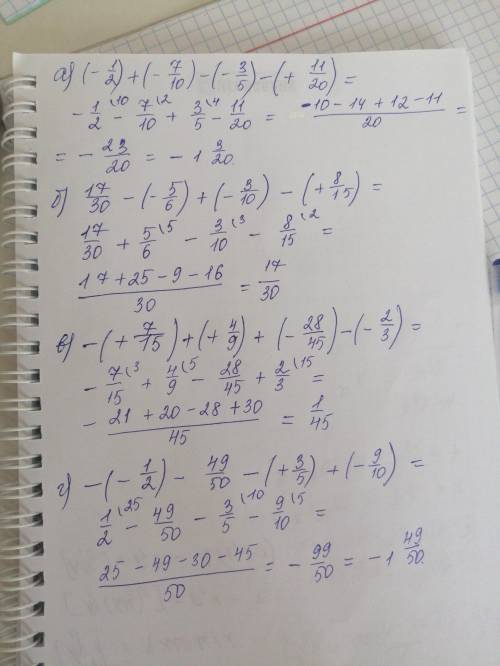 а) (- 1/2) + (- 7/10) - (- 3/5) - (+ 11/20) =
- 1/2 \10 - 7/10 \2 + 3/5 \4 - 11/20 = -10 - 14 + 12 - 11 / 20 =
= - 23/20 = - 1 3/20.
б) 17/30 - (- 5/6) + (- 3/10) - (+ 8/15) =
17/30 + 5/6 \5 - 3/10 \3 - 8/15 \2 =
17 + 25 - 9 - 16 / 30 = 17/30
в) - (+ 7/15) + (+ 4/9) + (- 28/45) - (- 2/3) =
- 7/15 \3 + 4/9 \5 - 28/45 + 2/3 \15 =
- 21 + 20 - 28 + 30 / 45 = 1/45
г) - (- 1/2) - 49/50 - (+ 3/5) + (- 9/10) =
1/2 \25 - 49/50 - 3/5 \10 - 9/10 \5 =
25 - 49 - 30 - 45 / 50 = - 99/50 = - 1 49/50.